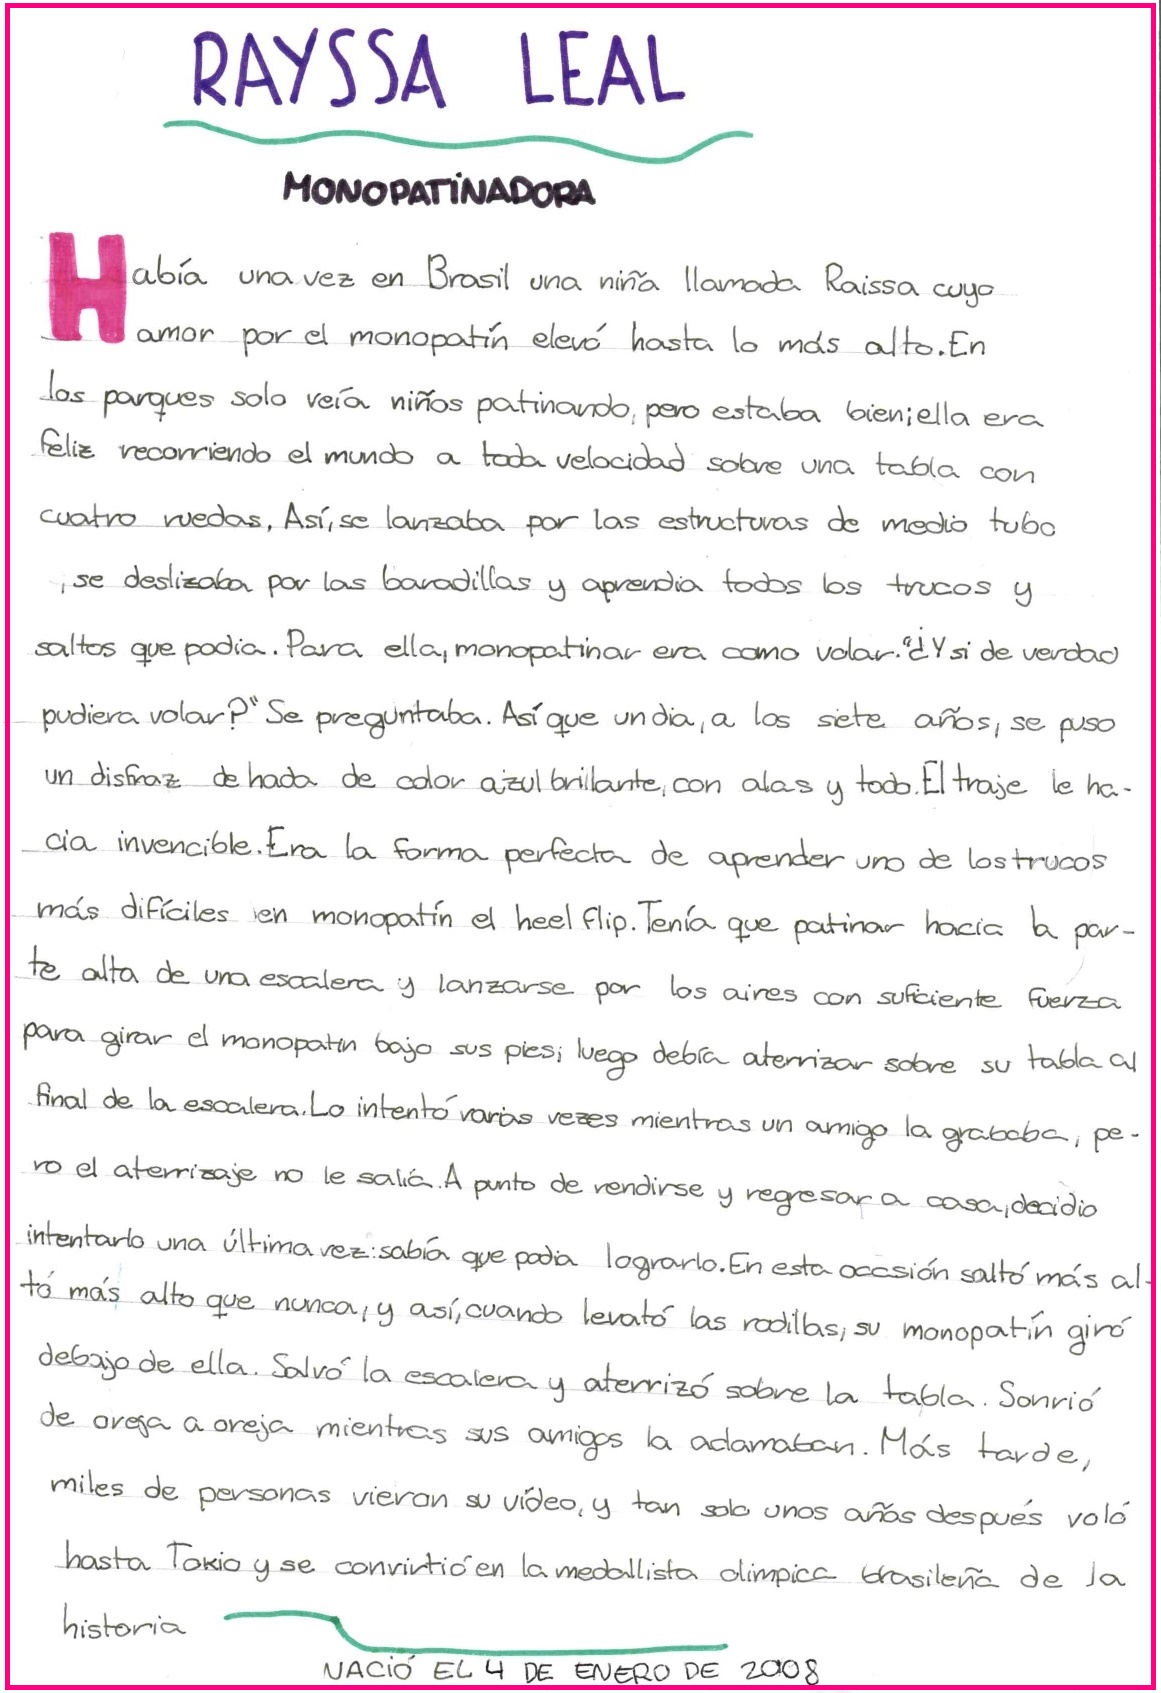 RAYSSA LEAL
MONOPATINADORA
Había una vez en Brasil una niña llamada Raissa cuyo
amor por el monopatín elevó hasta lo más alto. En
los parques solo veía niños patinando, pero estaba bien; ella era
feliz recorriendo el mundo a toda velocidad sobre una tabla con
cuatro ruedas, Así, se lanzaba por las estructuras de medio tubo
, se deslizaba por las baradillas y aprendia todos los trucos y
saltos que podia. Para ella, monopatinar era como volar. "¿Y si de verdad
pudiera volar?" Se preguntaba. Así que un dia, a los siete años, se puso
un disfraz de hada de color azul brillante, con alas y todo. El traje le ha-
cia invencible. Era la forma perfecta de aprender uno de los trucos
más difíciles en monopatín el heel flip. Tenía que patinar hacia la par-
te alta de una escalera y lanzarse por los aires con suficiente fuerza
para girar el monopatin bajo sus pies; luego debía aterrizar sobre su tabla al
final de la escalera. Lo intentó varias vezes mientras un amigo la grababa, pe-
ro el aterrizaje no le salía. A punto de rendirse y regresar a casa, decidio
intentarlo una última vez: sabía que podia lograrlo. En esta occsión saltó más al-
tó más alto que nunca, y así, cuando levató las rodillas, su monopatín giró
debajo de ella. Salvó la escalera y aterrizó sobre la tabla. Sonrió
de oreja a oreja mientras sus amigos la aclamaban. Más tarde,
miles de personas vieron su vídeo, y tan solo unos años después voló
hasta Tokio y se convirtió en la medallista olimpica brasileña de la
historia
NACIÓ EL 4 DE ENERO DE 2008